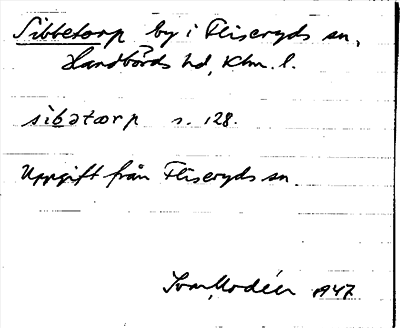 Sibbetorp by i Fliseryds sn,
Handbörds hd, Klm. l.
sibətærp s. 128.
Uppgift från Fliseryds sn.
Ivar Modéer 1947